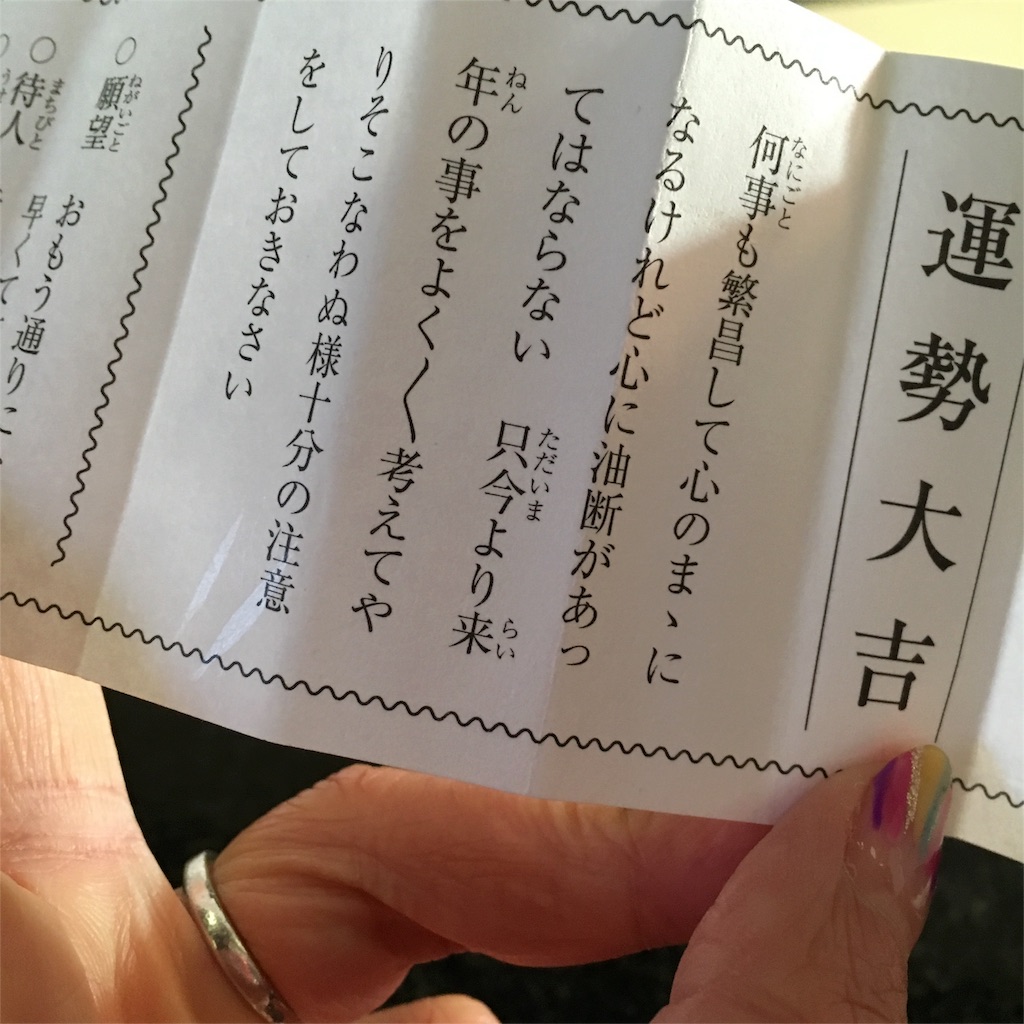 運勢大吉
何事も繁昌して心のまゝに
なるけれど心に油断があっ
てはならない　只今より来
年の事をよく〱考えてや
りそこなわぬ様十分の注意
をしておきなさい
○願望　おもう通りに
○待人　早くて